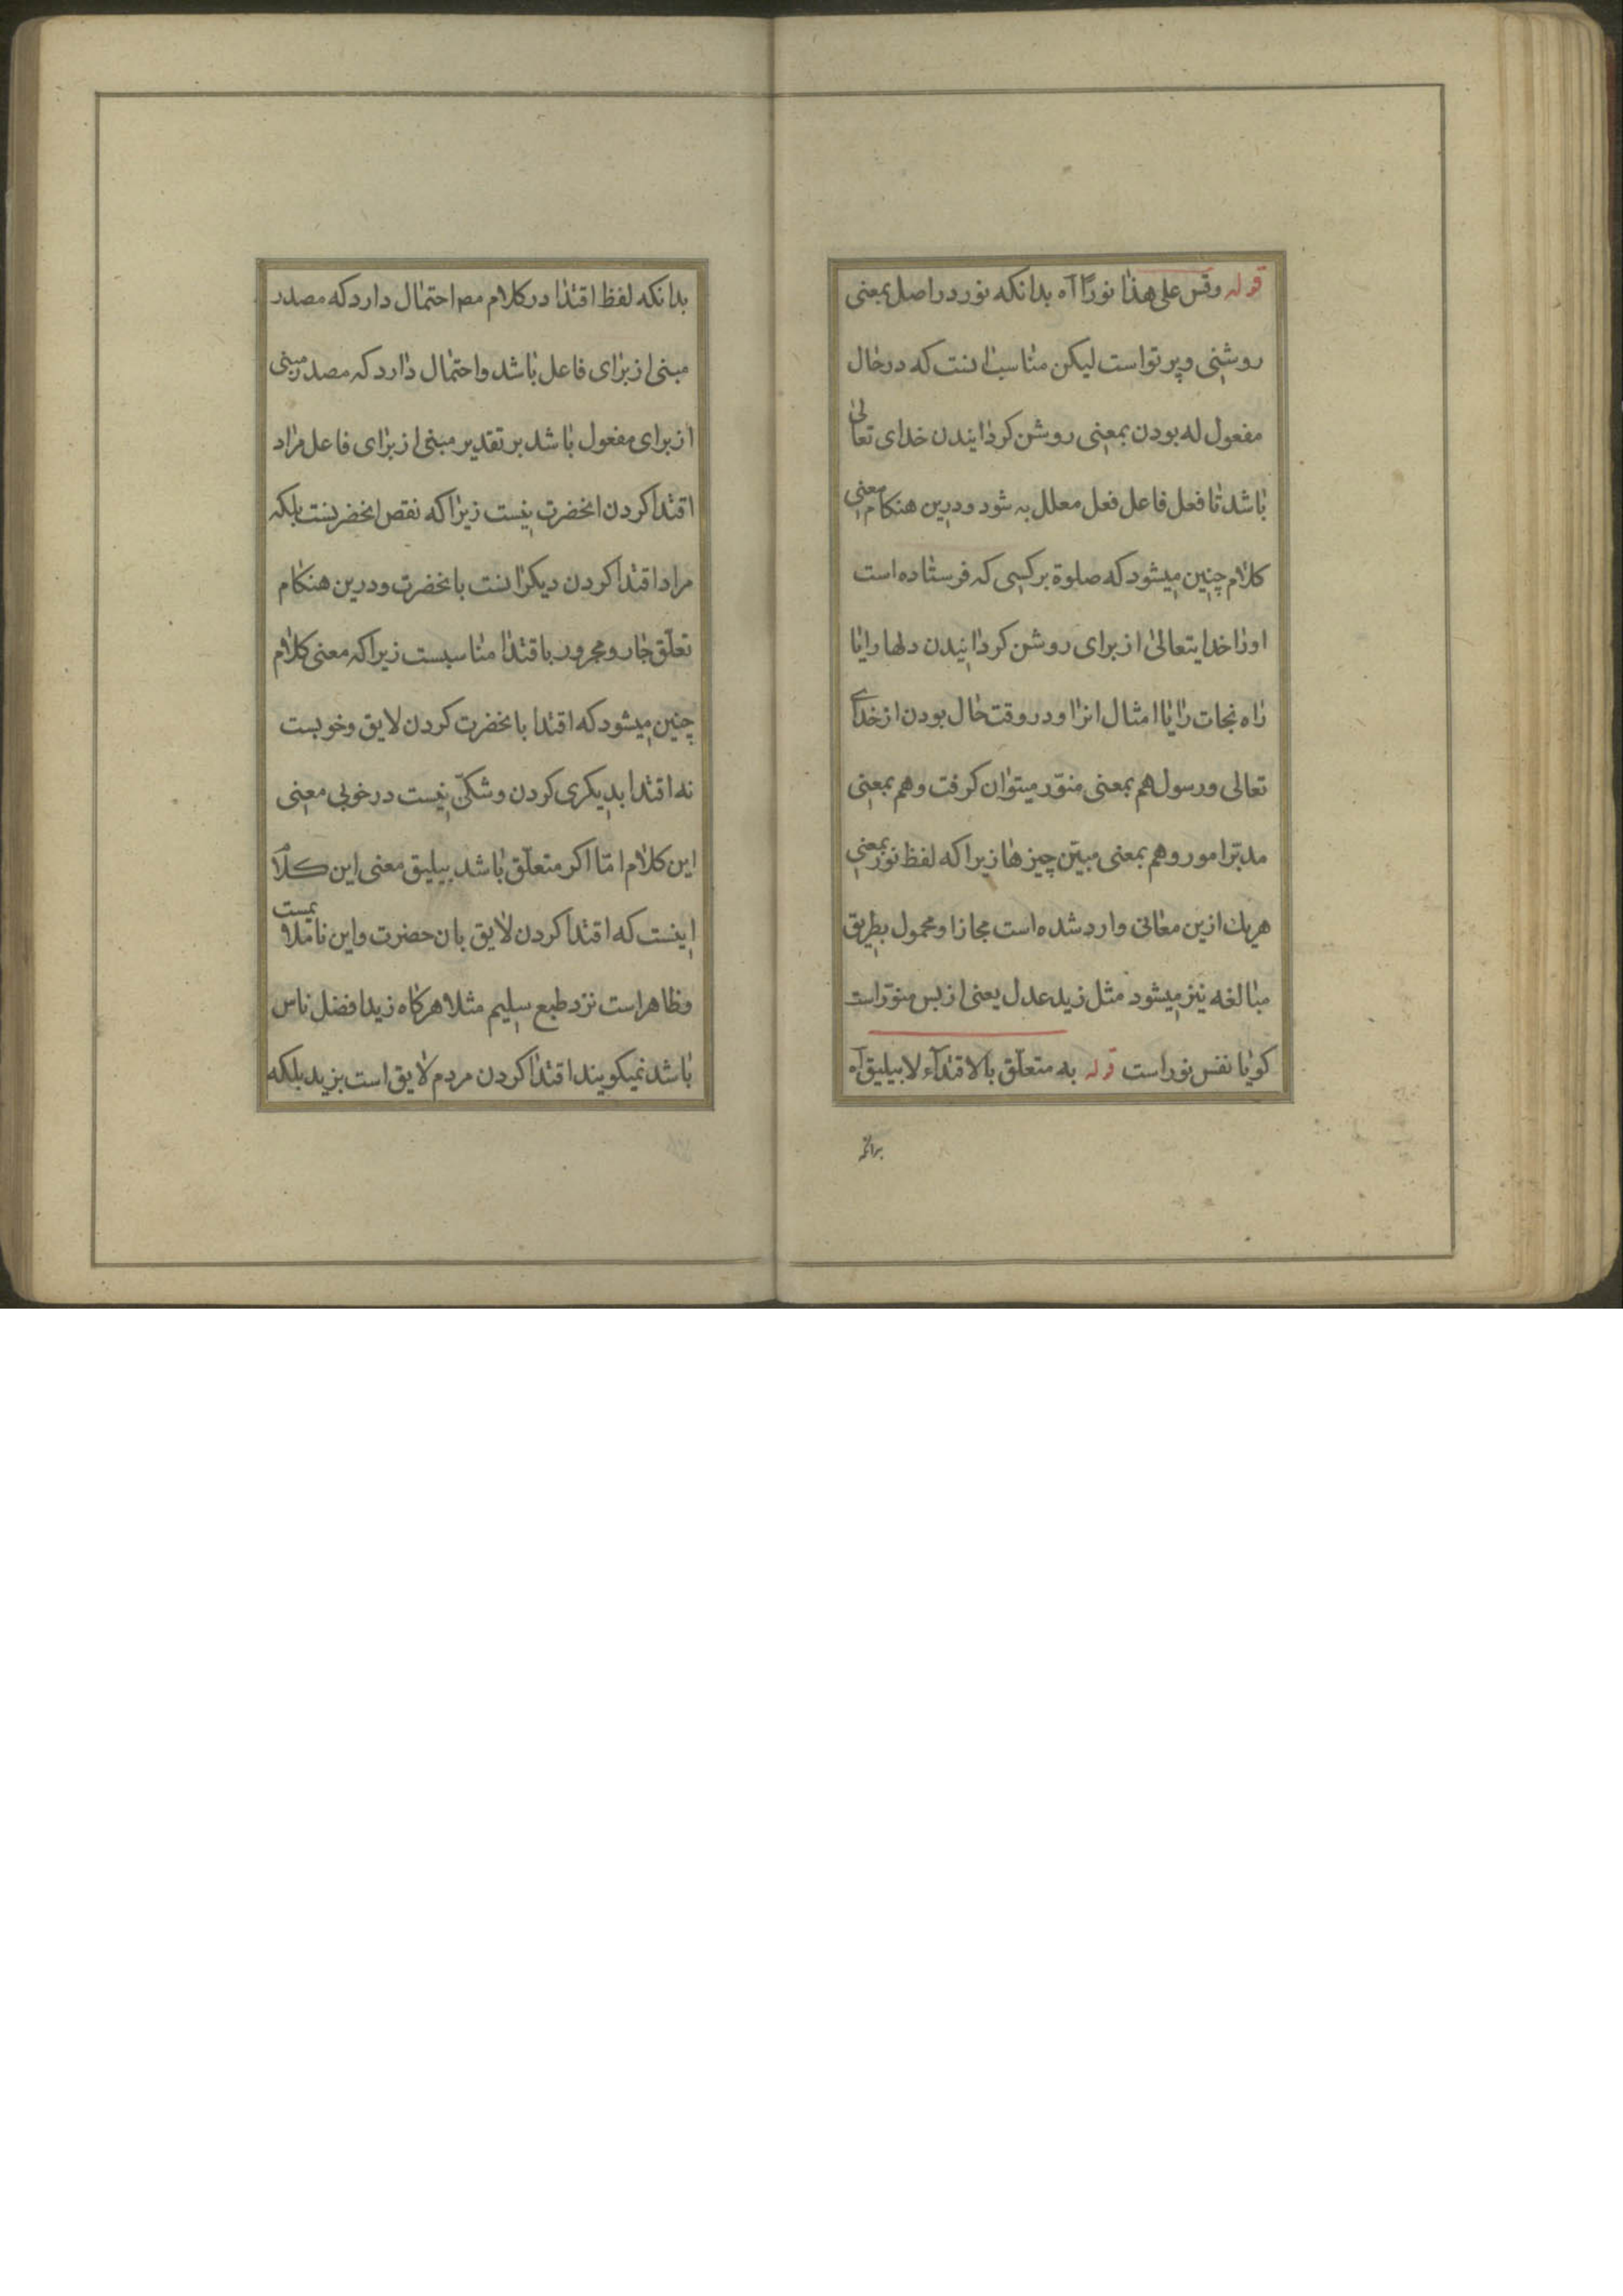 قوله وقس علی هذا نورًا آه بدانکه نور در اصل بمعنی
روشنی و پرتو است لیکن مناسب انست که در حال
مفعول له بودن بمعنی روشن کردانیدن خدای تعالی
باشد تا فعل فاعل فعل معلل به شود و درین هنکام معنی
کلام چنین میشود که صلوة بر کسی که فرستاده است
اورا خدایتعالی از برای روشن کردانیدن دلها را یا
راه نجات را یا امثال انرا و در وقت حال بودن از خدای
تعالی و رسول هم بمعنی منوّر میتوان کرفت و هم بمعنی
مدبّر امور و هم بمعنی مبیّن چیزها زیرا که لفظ نور بمعنی
هریك ازین معانی وارد شده است مجازا و محمول بطریق
مبالغه نیز میشود مثل زید عدل یعنی از بس منوّر است
کویا نفس نور است قوله به متعلّق بالاقتدآء لا بیلیق آه
بدانکه لفظ اقتدا در کلام مص احتمال دارد که مصدر
مبنی از برای فاعل باشد و احتمال دارد که مصدر مبنی
از برای مفعول باشد بر تقدیر مبنی از برای فاعل مراد
اقتدا کردن انحضرت نیست زیرا که نقص انحضرتست بلکه
مراد اقتدا کردن دیکرانست بانحضرت و درین هنکام
تعلّق جار و مجرور باقتدا مناسبست زیرا که معنی کلام
چنین میشود که اقتدا بانحضرت کردن لایق و خوبست
نه اقتدا بدیکری کردن و شکّی نیست در خوبی معنی
این کلام امّا اکر متعلّق باشد بیلیق معنی این کلام
اینست که اقتدا کردن لایق بان حضرت و این ناملایمست
و ظاهر است نزد طبع سلیم مثلا هرکاه زید افضل ناس
باشد نمیکویند اقتدا کردن مردم لایق است بزید بلکه